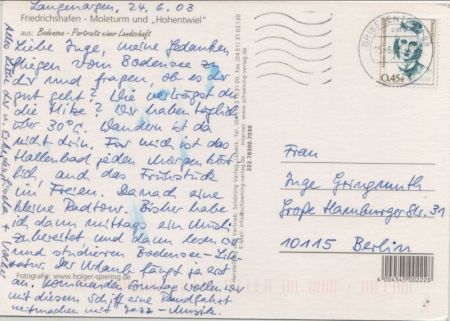 Langenargen, 24.6.03
Friedrichshafen - Moleturm und „Hohentwiel"
aus: Bodensee - Portraits einer Landschaft
Liebe Inge, meine Gedanken
fliegen vom Bodensee zu
dir und fragen, ob es dir
gut geht? Wie verträgst du
die Hitze? Wir haben täglich
über 30°C. Wandern ist da
nicht drin. Für mich ist das
Hallenbad jeden Morgen köst-
lich, auch das Frühstück
im Freien. Danach eine
kleine Radtour. Bisher habe
ich dann mittags ein
zubereitet und dann lesen
und studieren Bodensee-Lite-
ratur. Der Urlaub fängt ja erst
an. Kommenden Sonntag wollen wir
mit diesem Schiff eine Rundfahrt
mitmachen mit Jazz-Musik.
Alles Liebe dir
Fotografie: www.holger-spiering.de
222.78300.7030
BRIEFZENTRUM 88
0,45€
Frau
Inge Gringmuth
Große Hamburger Str. 31
10115 Berlin
4 004545 002228